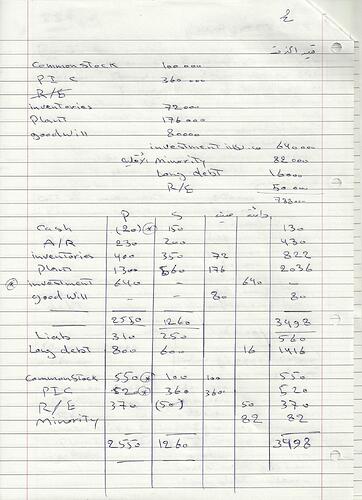 قيد الحذف
Common Stock 100.000
PIC 360.000
R/E
inventories 72000
Plant 176000
goodwill 80000
investment 640000
Minority الأقلية 82000
Long debt 16000
R/E 50.000
P S مدينة دائنة
Cash (20) * 150 130
A/R 230 200 430
inventories 400 350 72 822
Plant 1300 560 176 2036
* investment 640 - 640 -
goodwill - - 80 80
2550 1260 3498
Liab 310 250 560
Long debt 800 600 16 1416
Common Stock 550 * 100 100 550
PIC 520 * 360 360 520
R/E 370 (50) 50 370
Minority 82 82
2550 1260 3498